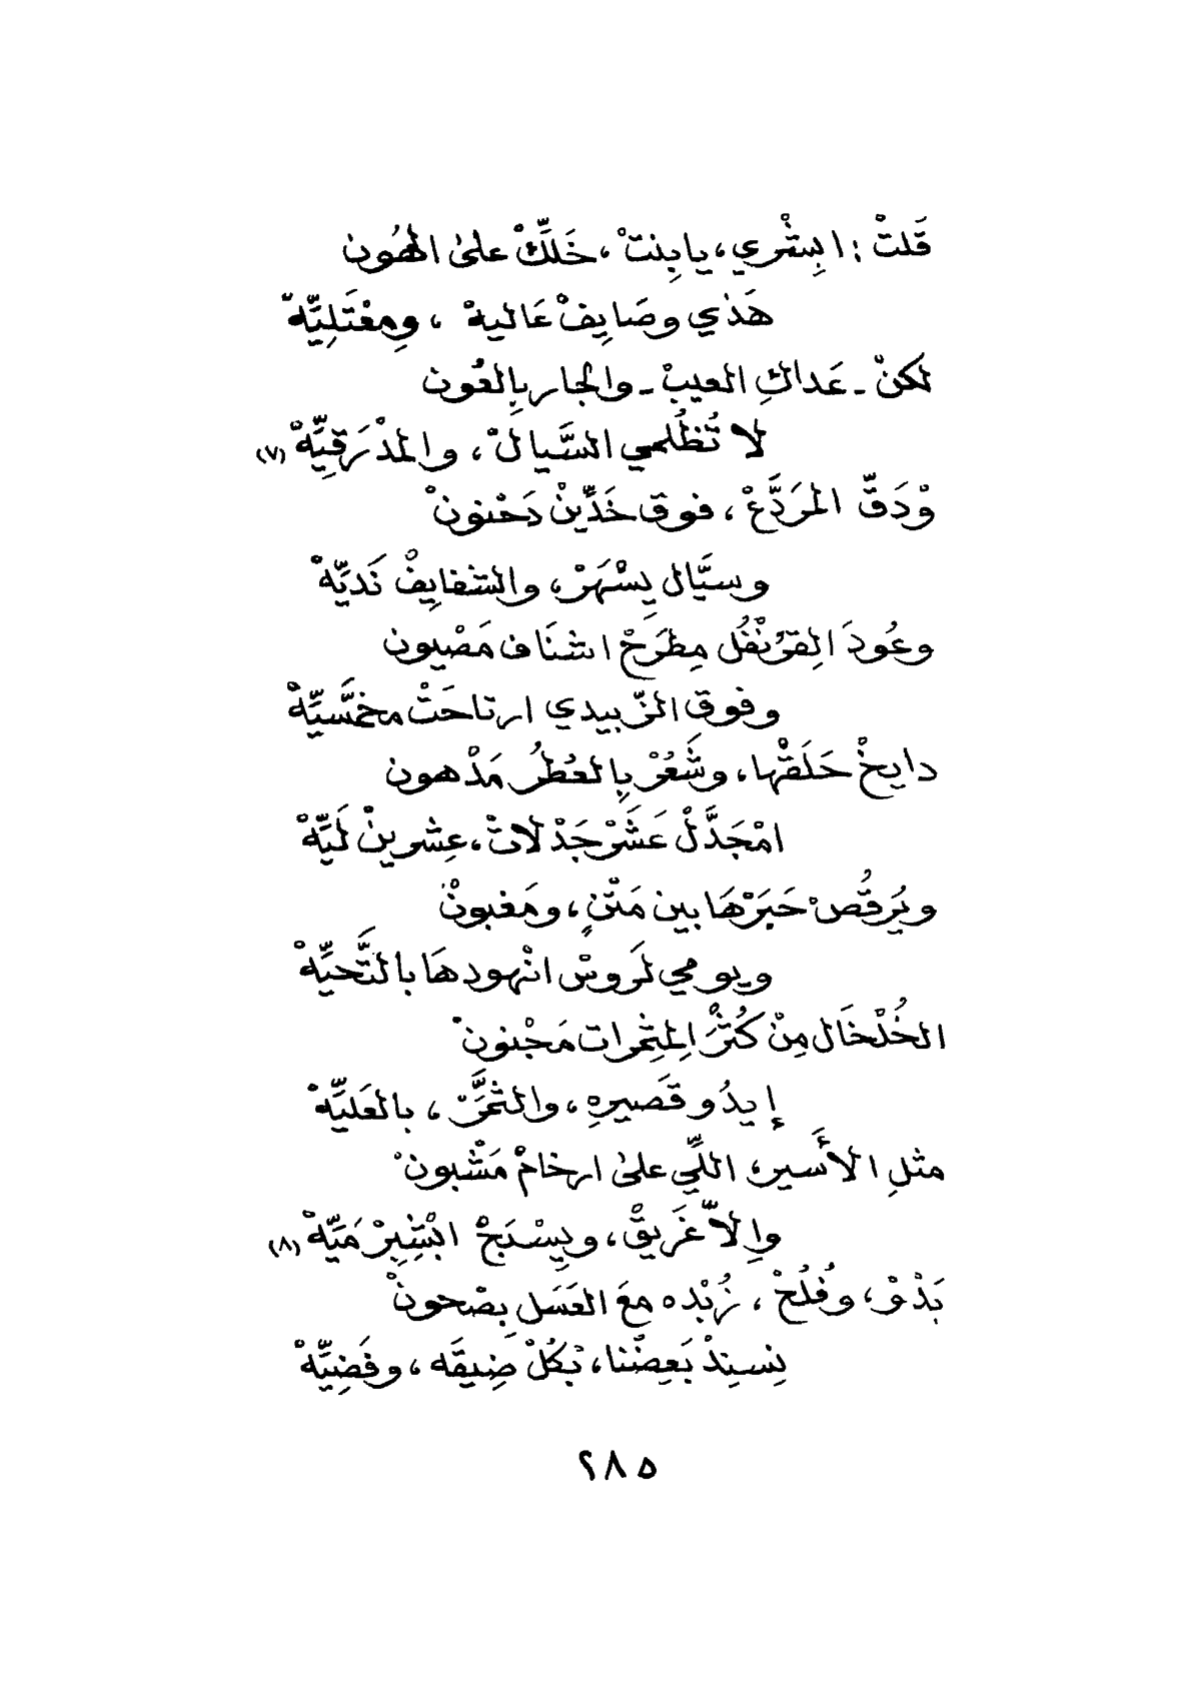 قَلتْ : ابِشْري ، يا بِنتْ ، خَلِّكْ على الهُون
هَذي وصَايِفْ عَاليهْ ، ومِعْتَلِيِّهْ
لكنْ - عَداكِ العيبْ - والجار بِالعُون
لا تُظلُمي السَّيالْ ، والمدْرَقِيِّهْ (٧)
وْدَقِّ المرَدَّعْ ، فوق خَدِّينْ دَحْنونْ
وسيَّال يِسْهَرْ ، والشفايِفْ نَديِّهْ
وعُودَ القِرُنْفُل مِطرَحْ اشنَاف مَصْيون
وفوق الزّبيدي ارتاحَتْ مخمَّسيِّهْ
دايخْ حَلَقْها ، وشَعُرْ بِالعُطرُ مَدْهون
امْجَدَّلْ عَشَرْ جَدْلاتْ ، عِشرينْ لَيِّهْ
ويُرقُصْ حَبَرْهَا بين مَتْنٍ ، ومَغبونْ
ويومي لَروسْ انْهودهَا بالتَّحيِّهْ
الخُلْخَال مِنْ كُثْرَ المِثمرات مَجْنونْ
إيدُو قَصيرهِ ، والثمَّرْ ، بالعَليِّهْ
مثلِ الأَسير ، اللّي على ارخامْ مَشْبونْ
وِالاّ غَريقْ ، ويِسْبَحْ ابْشِبِرْ مَيِّهْ (٨)
بَدْوْ ، وفُلُحْ ، زُبْده معَ العَسَل بِصْحونْ
نِسنِدْ بَعِضْنا ، بْكُلْ ضِيقَه ، وقَضِيِّهْ
٢٨٥